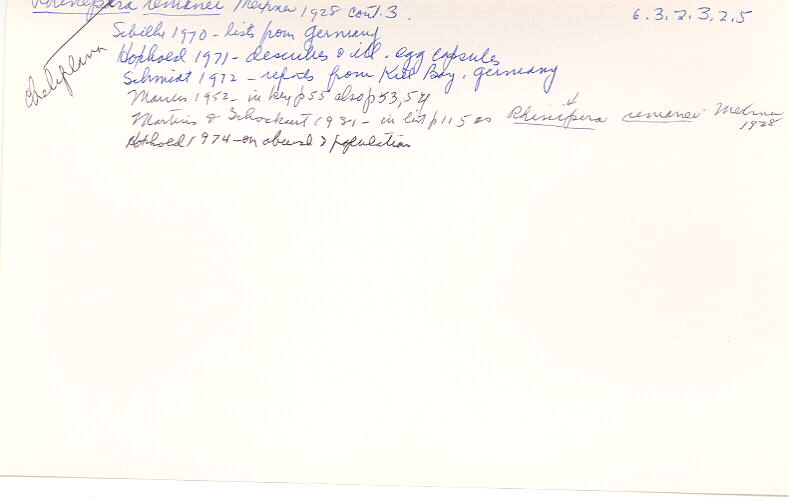 Rhinepera remanei Meixner 1928 cont. 3. 6.3.2.3.2.5
Cheliplana
Sibille 1970 - lists from Germany
Hoxhold 1971 - describes & ill. egg capsules
Schmidt 1972 - reports from Kiel Bay, Germany
Marcus 1952 - in key p55 also p53,54
Martens & Schockaert 1981 - in list p115 as Rhinipera remanei Meixner 1928
Hoxhold 1974 - on abund & population